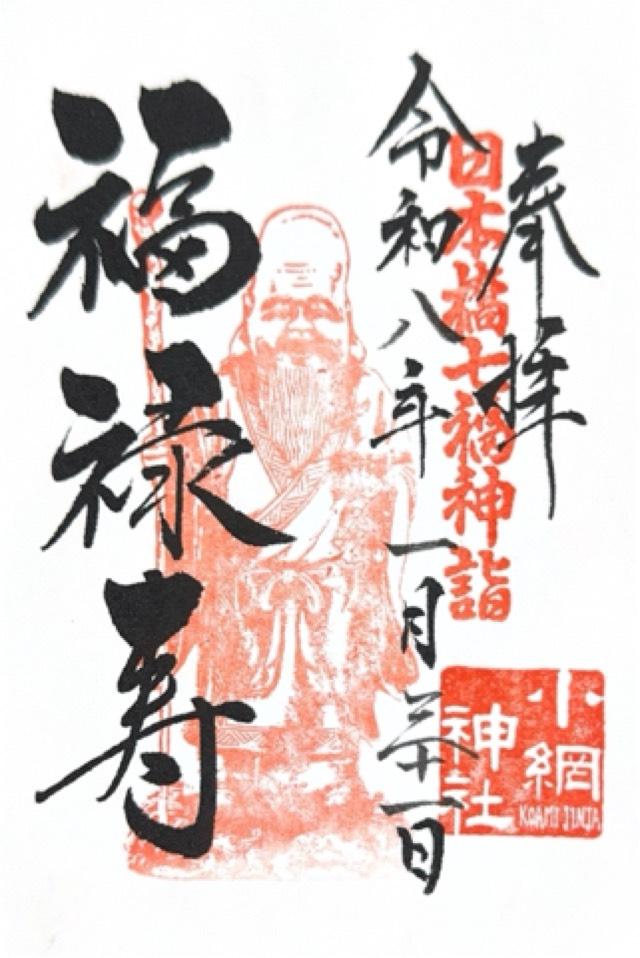 奉拝
日本橋七福神詣
小網
神社
KOAMI JINJA
令和八年一月三十一日
福禄寿